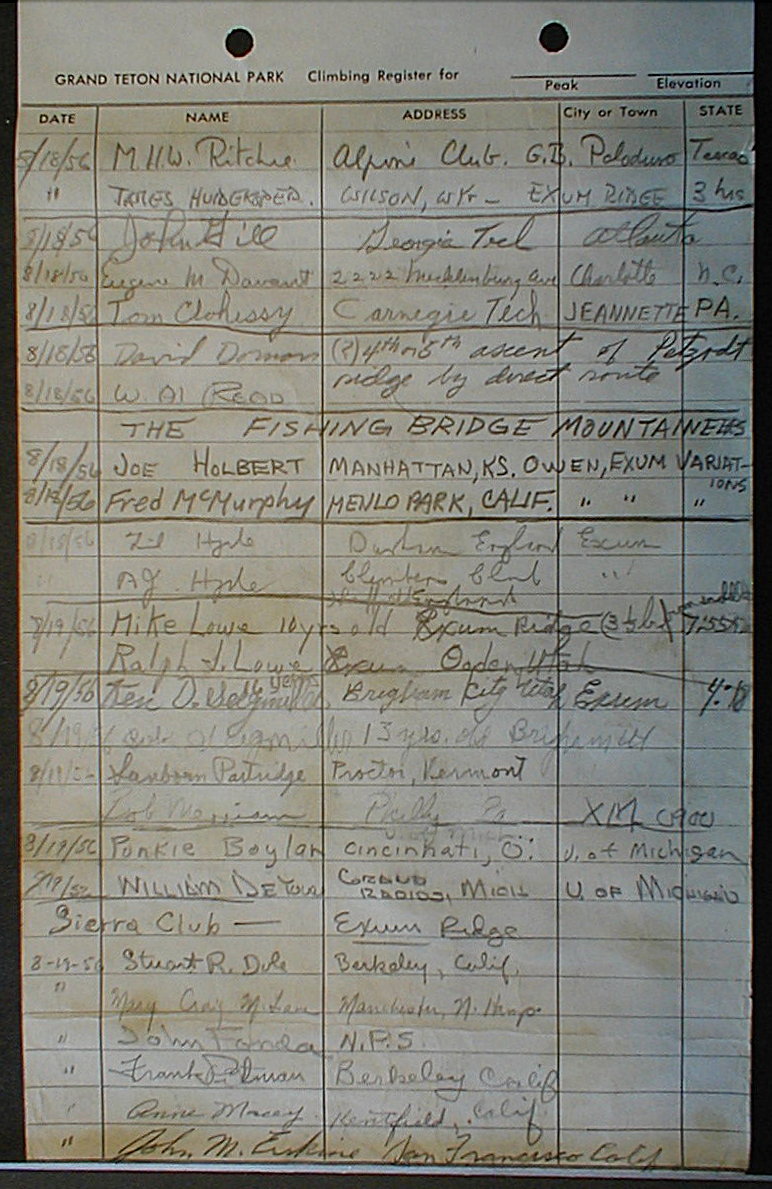 GRAND TETON NATIONAL PARK Climbing Register for
Peak Elevation
DATE NAME ADDRESS City or Town STATE
8/18/56 M.H.W. Ritchie Alpine Club. G.B. Paloduro Texas
" WILSON, WY - EXUM RIDGE 3 hrs
8/18/56 John Gill Georgia Tech Atlanta
8/18/56 Eugene M 2222 Mecklenburg Ave Charlotte N.C.
8/18/56 Tom Clohessy Carnegie Tech JEANNETTE PA.
8/18/56 David Dornan (?) 4th or 5th ascent of Petzoldt
ridge by direct route
8/18/56 W. Al READ
THE FISHING BRIDGE MOUNTAINEERS
8/18/56 JOE HOLBERT MANHATTAN, KS. OWEN, EXUM VARIAT-
IONS
8/18/56 Fred McMurphy MENLO PARK, CALIF. " " "
8/18/56 Hyde England Exum
" A.J. Hyde Climbers Club "
8/19/56 Mike Lowe 10 yrs old Exum Ridge
Ralph J. Lowe Exum Ogden, Utah
8/19/56 D. Brigham City Utah Exum
8/19/56 13 yrs. old
8/19/56 Sanborn Partridge Proctor, Vermont
Bob Merriam Philly Pa
8/19/56 Punkie Boylan Cincinnati, O. U. of Michigan
8/19/56 WILLIAM GRAND
RAPIDS, MICH U. OF MICHIGAN
Sierra Club — Exum Ridge
8-19-56 Stuart R. Dole Berkeley, Calif.
" Mary Craig McLane Manchester, N. Hamp.
" John Fonda N.P.S.
" Frank Berkeley Calif
" Anne Macey Kentfield, Calif
" John M. Erskine San Francisco Calif